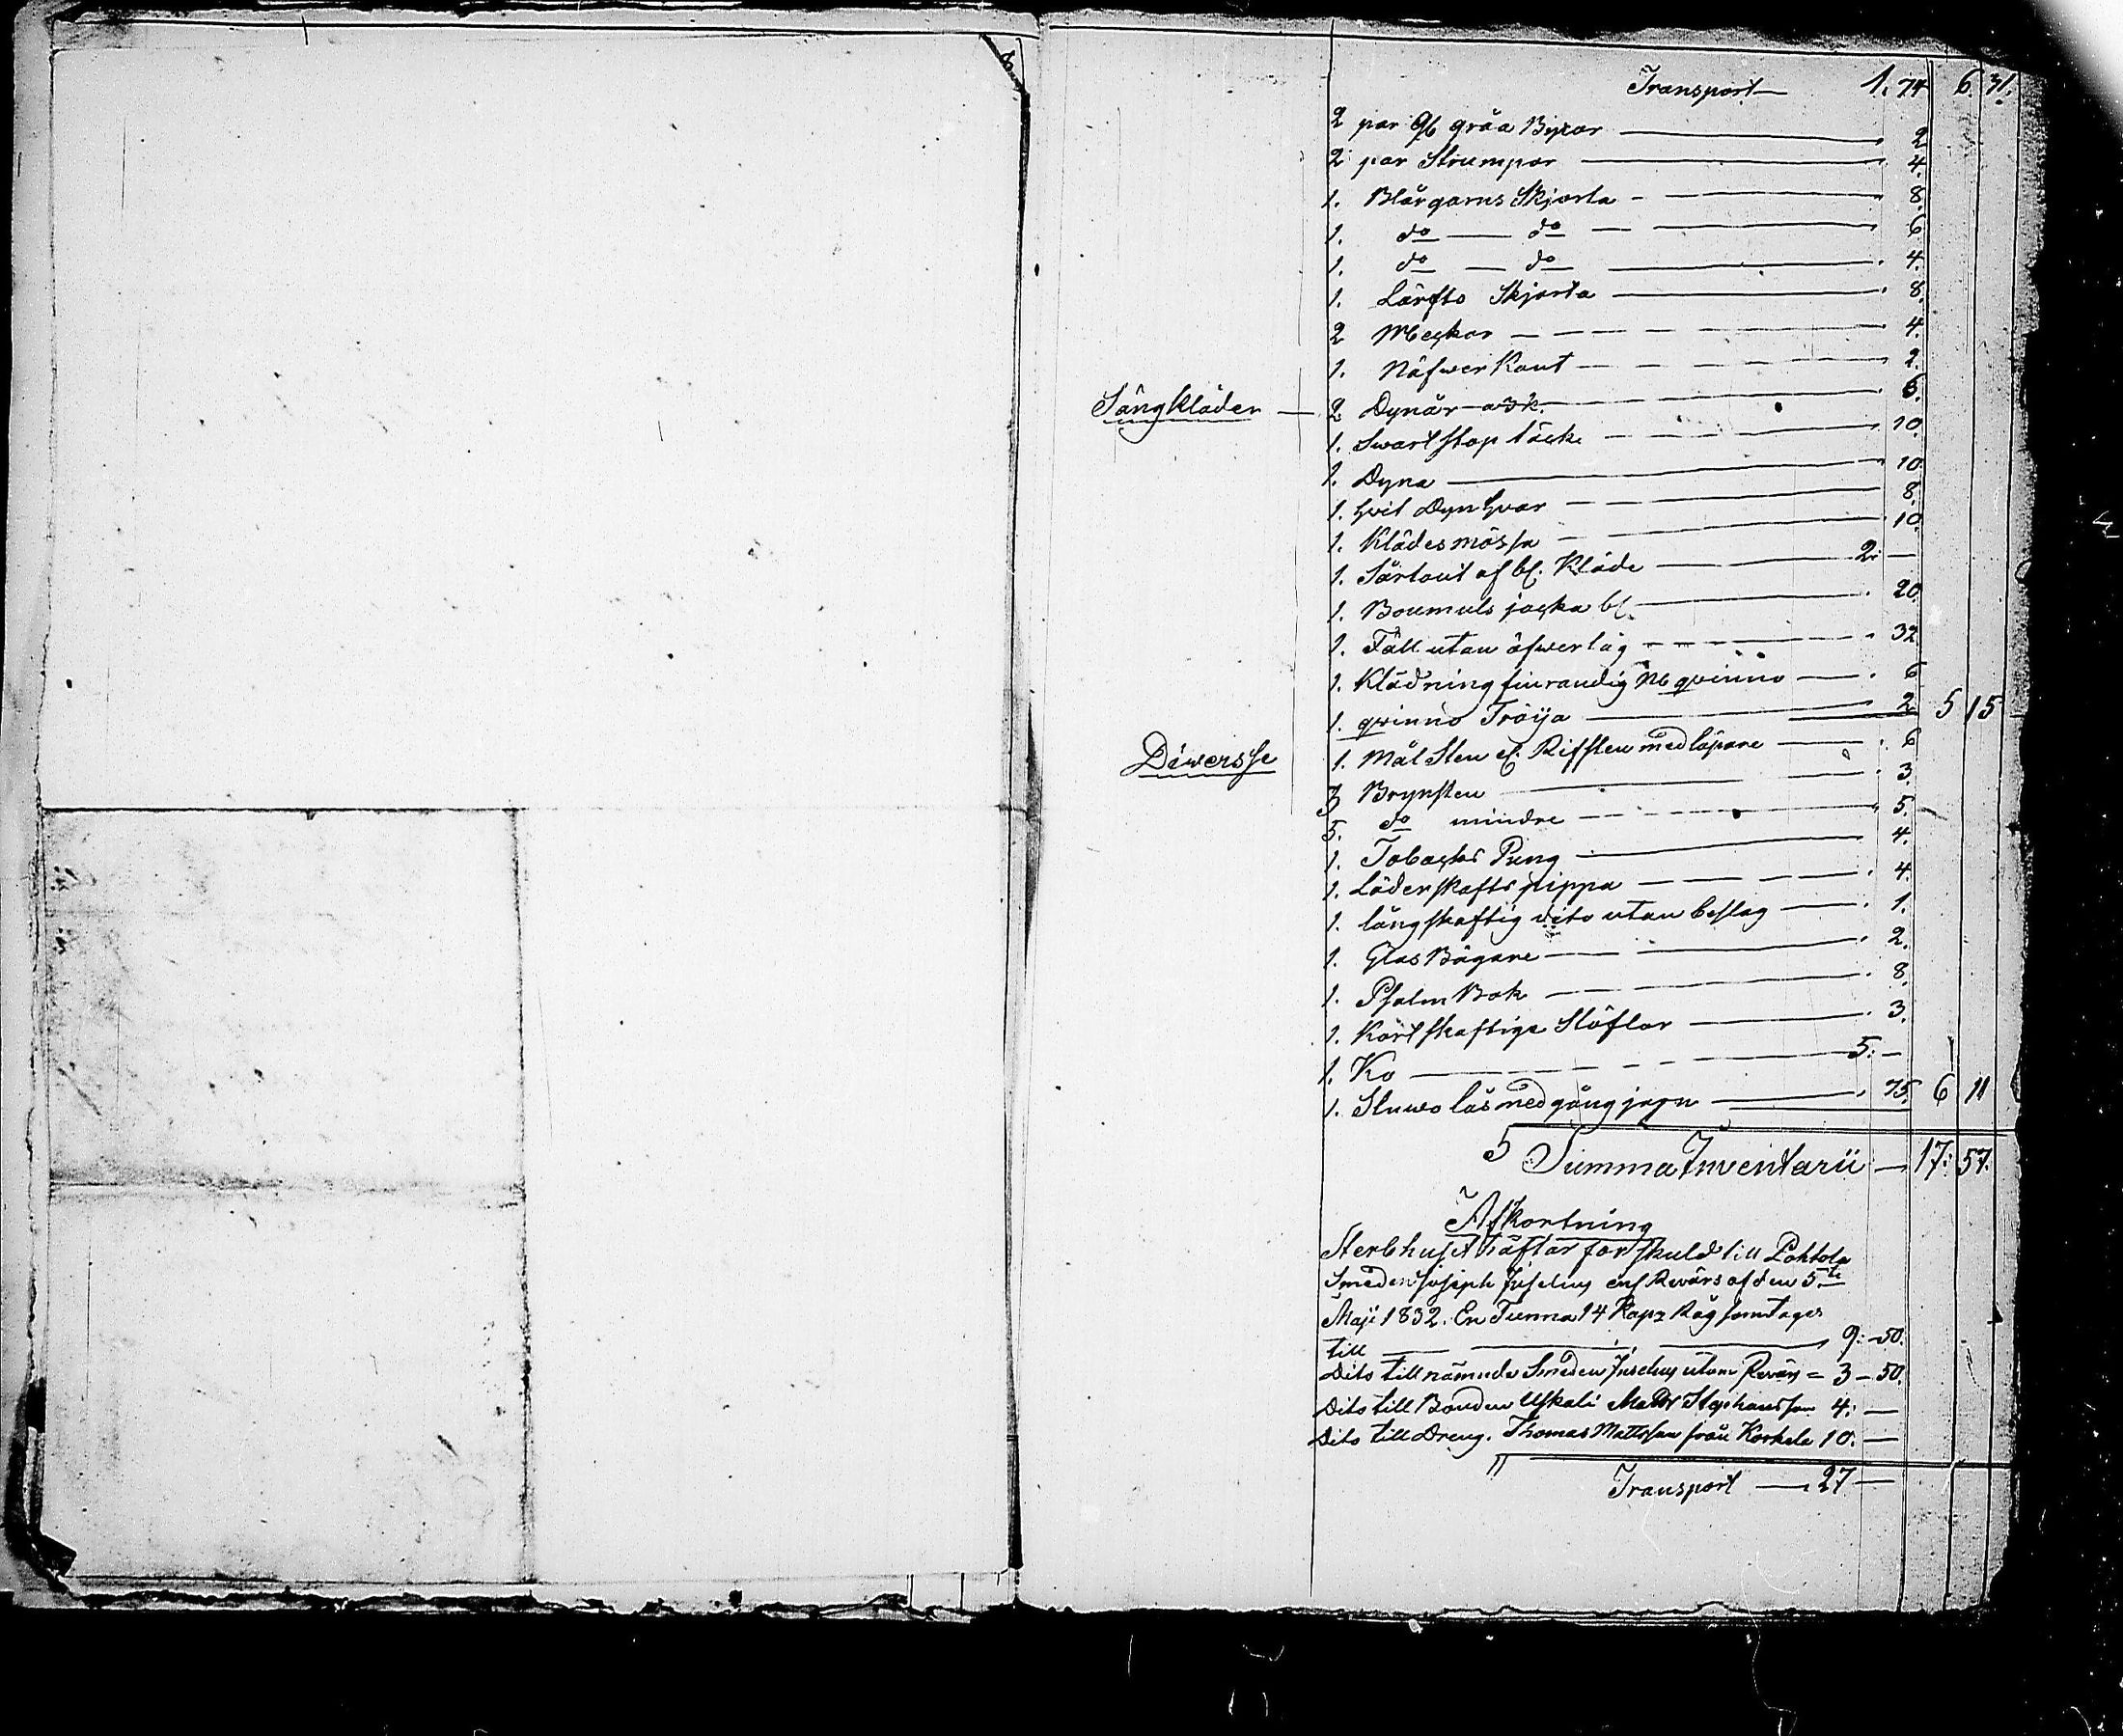 Transport — 1. 74 6. 31.
2 par gråa Byxor — 2
2 par Strumpor — 4.
1. Blårgarns Skjorta — 8.
1. do — do — 6
1. do — do — 4.
1. Lärfts Skjorta — 8.
2 — 4.
1. Näfwer Kont — 2.
Sängkläder — 2 Dynår — 6.
1. Swart täcke — 10.
1. Dyna — 10.
1. hvit Dynhvar — 8.
1. Klädesmössa — 10.
1. Sürtout af bl. Kläde — 2. —
1. Boumuls jacka bl. — 20.
1. Fäll utan öfwerlag — 32
1. Klädning finrandig qvinno — 6
1. qwinno Tröija — 2 5 15
Diwersse 1. Mål Sten el. Rifsten med löpare — 6
3 Brynsten — 3.
5. do mindre — 5.
1. Tobacks Pung — 4.
1. Läderskafts pippa — 4.
1. långskaftig dito utan beslag — 1.
1. Glas Bägare — 2.
1. Psalm Bok — 8.
1. Kortskaftiga Stöflor — 3.
1. Ko — 5: —
1. Stuwo lås med gångjern — 75. 6 11
5 Summa Inventarii — 17: 57.
Afkortning
Sterbhuset häftar för skuld till Pohtola
Smeden Joseph Juselius enl Revärs af den 5te
Maji 1832. En Tunna 14 Kap. Råg som tages
till — 9: 50.
Dito till nämnde Smeden Juselius utom Revärs = 3 — 50.
Dito till Bonden Uskali Matts Stephansson 4: —
Dito till Dreng. Thomas Mattsson från Korkela 10. —
Transport — 27 —